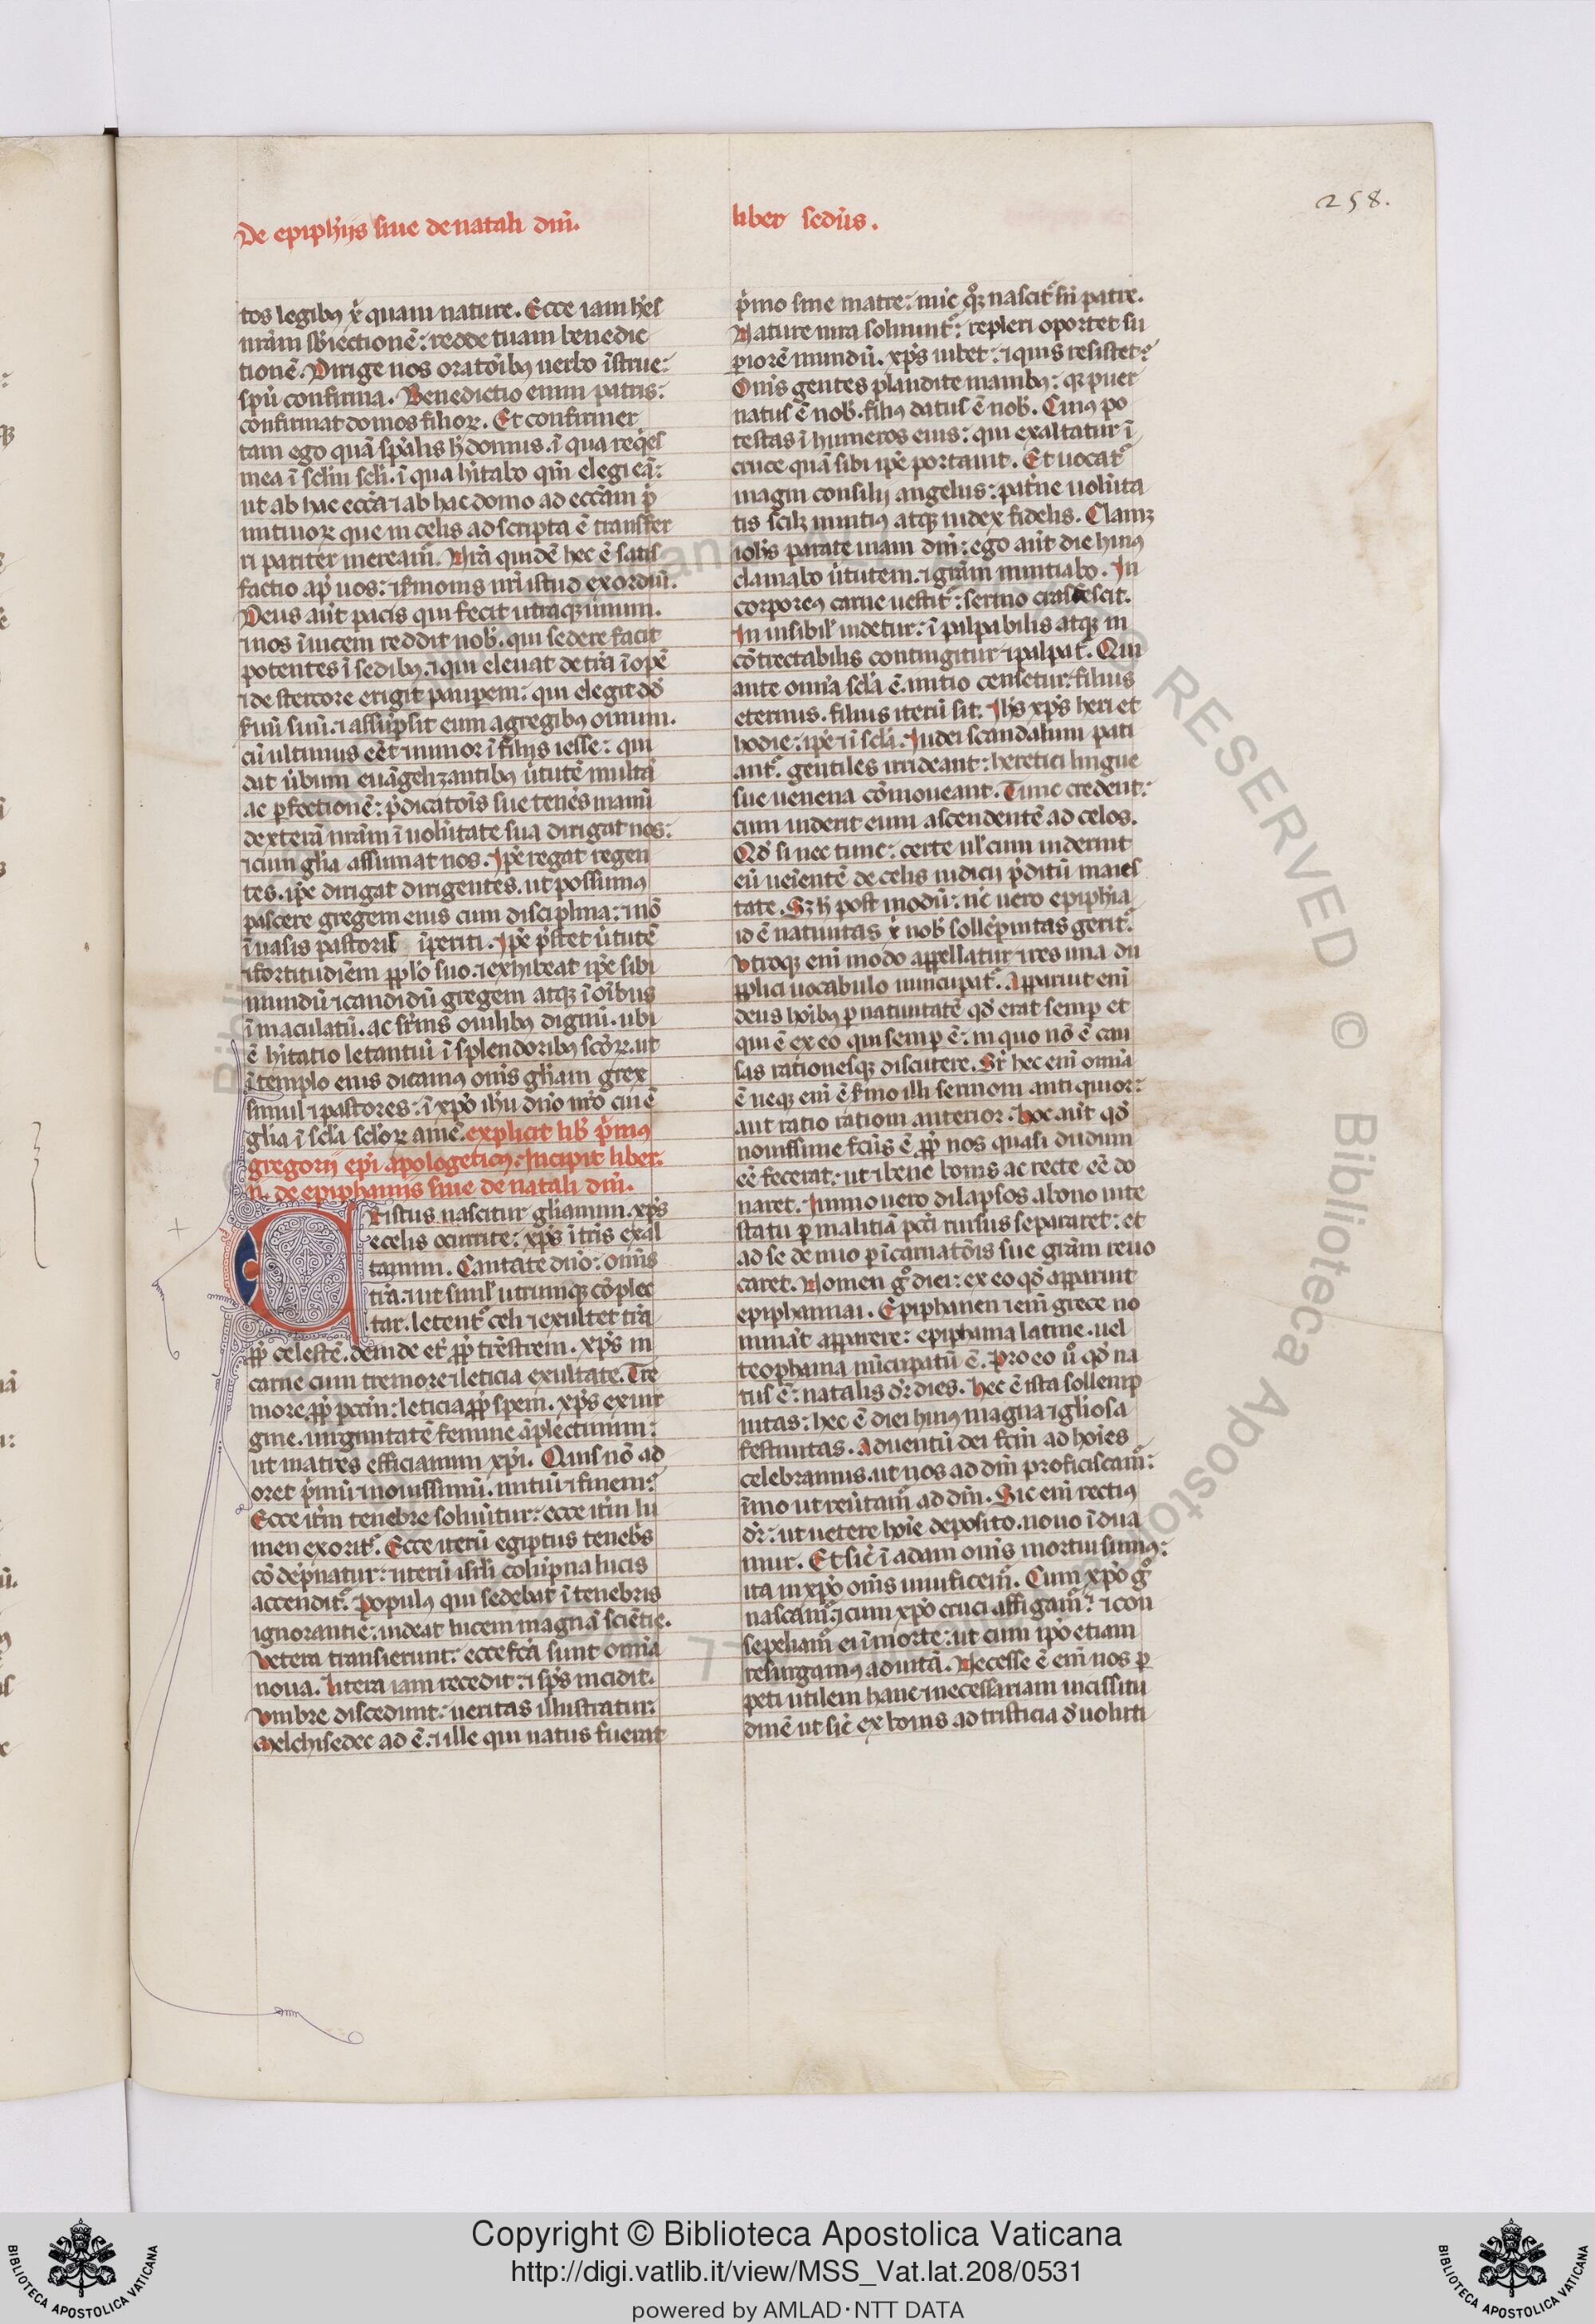 De epiph̄ijs siue de natali dn̄i.
liber sed̄us.
258.
tos legibꝰ xp̄i quam nature. Ecce iam h̄es
nr̄am sb̄iectionē: redde tuam benedic
tionē. Dirige nos orat̄oibꝰ uerbo īstrue:
sp̄u confirma. Benedictio enim patris:
confirmat domos filioꝝ. Et confirmer
tam ego quā sp̄alis h̄ domus. ī qua req̄es
mea ī sc̄lm sc̄li. ī qua h̄itabo qm̄ elegi eā:
ut ab hac ecc̄a ⁊ ab hac domo ad ecc̄am p̄
mitiuoꝝ que in celis adscripta ē transfer
ri pariter meream̄. Nr̄a quidē hec ē satis
factio ap̄ uos: ⁊ s̄monis nr̄i istud exordiū.
Deus aūt pacis qui fecit utraqꝫ unum.
⁊ nos īuicem reddit nob̄. qui sedere facit
potentes ī sedibꝰ. ⁊ qui eleuat de tr̄a īopē
⁊ de stercore erigit paupem: qui elegit dd̄
s̄uū suū. ⁊ assūpsit eum a gregibꝰ ouium.
cū ultimus eēt ⁊ minor ī filijs iesse: qui
dat ūbum euāgelizantibꝰ ūtutē multa
ac ꝑfectionē: p̄dicat̄ois sue tenēs manū
dexterā nr̄am ī uolūtate sua dirigat nos:
⁊ cum gl̄ia assumat nos. Ip̄e regat regen
tes. ip̄e dirigat dirigentes. ut possimꝰ
pascere gregem eius cum disciplina: ⁊ nō
ī uasis pastoris īperiti. Ip̄e p̄stet ūtutē
⁊ fortitudīem pplo suo. ⁊ exhibeat ip̄e sibi
mundū ⁊ candidū gregem atqꝫ ī oībus
īmaculatū. ac sup̄nis ouilibꝰ dignū. ubi
ē h̄itatio letantiū ī splendoribꝰ sc̄oꝝ. ut
ī templo eius dicamꝰ om̄s gl̄iam grex
simul ⁊ pastores: ī xp̄o ih̄u dn̄o nr̄o cui ē
gl̄ia ī sc̄la sc̄loꝝ amē. explicit lib̄ p̄mꝰ
gregorij ep̄i apologeticꝰ. Incipit liber
.ij. de epiphanijs siue de natali dn̄i.
CRistus nascitur gl̄iamini. xp̄s
e celis occurrite: xp̄s ī tr̄is exal
tamini. Cantate dn̄o: om̄is
tr̄a. ⁊ ut simul utrumqꝫ cōplec
tar. letent̄ celi ⁊ exultet tr̄a
ꝓp̄ celestē. deinde et̄ ꝓp̄ tr̄estrem. xp̄s in
carne cum tremore ⁊ leticia exultate. Tre
more ꝓp̄ pcc̄m: leticia ꝓp̄ spem. xp̄s ex uir
gine. uirginitatē femine āplectimini:
ut matres efficiamini xp̄i. Quis nō ad
oret p̄mū ⁊ nouissimū. initiū ⁊ finem:
Ecce it̄m tenebre soluūtur: ecce it̄m lu
men exorit̄. Ecce iterū egiptus tenebs̄
cōdēpnatur: iterū isrl̄ colūpna lucis
accendit̄. Populꝰ qui sedebat ī tenebris
ignorantie: uideat lucem magnā sciētie.
Vetera transierunt: ecce fc̄a sunt om̄ia
noua. Litera iam recedit: ⁊ sp̄s incidit.
Vmbre discedunt: ueritas illustratur:
Melchisedec ad ē: ⁊ ille qui natus fuerat
p̄mo sine matre: nūc q̄ꝫ nascit̄ sn̄ patre.
Nature iura soluunt̄: repleri oportet su
periorē mundū. xp̄s iubet: ⁊ quis resistet:
Om̄s gentes plaudite manibꝰ: qꝛ puer
natus ē nob̄. filiꝰ datus ē nob̄. Cuiꝰ po
testas ī humeros eius: qui exaltatur ī
cruce quā sibi ip̄e portauit. Et uocat̄
magni consilij angelus: pat̄ne uolūta
tis scilꝫ nuntiꝰ atqꝫ iudex fidelis. Clamꝫ
ioh̄s parate uiam dn̄i: ego aūt die huiꝰ
clamabo ūtutem. ⁊ grām nuntiabo. In
corporeꝰ carne uestit̄: sermo crassescit.
In uisibil' uidetur: ī palpabilis atqꝫ in
cōtrectabilis contingitur ⁊ palpat̄. Qui
ante om̄ia sc̄la ē. initio censetur: filius
eternus. filius iterū fit. Ih̄s xp̄s heri et
hodie: ip̄e ⁊ ī sc̄la. Iudei scandalum pati
ant̄. gentiles irrideant: heretici lingue
sue uenena cōmoueant. Tunc credent:
cum uiderit eum ascendentē ad celos.
Qd̄ si nec tunc: certe uel cum uiderint
eū ueīentē de celis iudicij p̄ditū maies
tate. Sꝫ h̄ post modū: nc̄ uero epiph̄ia
id ē natiuitas xp̄i nob̄ sollēpnitas gerit̄.
Vtroqꝫ enī modo appellatur ⁊ res una du
pplici uocabulo nuncupat̄. Apparuit enī
deus hoībꝰ ꝑ natiuitatē qd̄ erat semꝑ et
qui ē ex eo qui semꝑ ē: in quo nō ē cau
sas rationesqꝫ discutere. Sr̄ hec enī om̄ia
ē neqꝫ enī ē s̄mo illi sermoni antiquior:
aut ratio rationi anterior. Hoc aūt qd̄
nouissime fc̄ūs ē ꝓp̄ nos quasi dudum
eē fecerat: ut ⁊ bene bonis ac recte eē do
naret. Immo uero dilapsos a bono uite
statu ꝑ malitiā pcc̄i rursus separaret: et
ad se denuo ꝑ īcarnat̄ois sue grām reuo
caret. Nomen g̊ diei: ex eo qd̄ apparuit
epiphaniai. Epiphanen ⁊ enī grece no
minant apparere: epiphania latine. uel
teophania nūcupatū ē. Pro eo ū̊ qd̄ na
tus ē: natalis dr̄ dies. Hec ē ista sollemp
nitas: hec ē diei huiꝰ magna ⁊ gl̄iosa
festiuitas. Aduentū dei fc̄m ad hoīes
celebramus. ut nos ad dm̄ proficiscam̄:
īmo ut reūtam̄ ad dm̄. Sic enī rectiꝰ
dr̄: ut uetere hoīe deposito. nouo īdua
mur. Et sic̄ ī adam om̄s mortui sumꝰ:
ita in xp̄o om̄s uiuificem̄. Cum xp̄o g̊
nascam̄: ⁊ cum xp̄o cruci affigam̄: ⁊ con
sepeliam̄ ei ī morte: ut cum ip̄o etiam
resurgamꝰ ad uitā. Necesse ē enī nos ꝑ
peti utilem hanc ⁊ necessariam uicissitu
dinē ut sic̄ ex bonis ad tristicia d̄uoluti
Copyright © Biblioteca Apostolica Vaticana
http://digi.vatlib.it/view/MSS_Vat.lat.208/0531
powered by AMLAD·NTT DATA
BIBLIOTECA APOSTOLICA VATICANA
BIBLIOTECA APOSTOLICA VATICANA